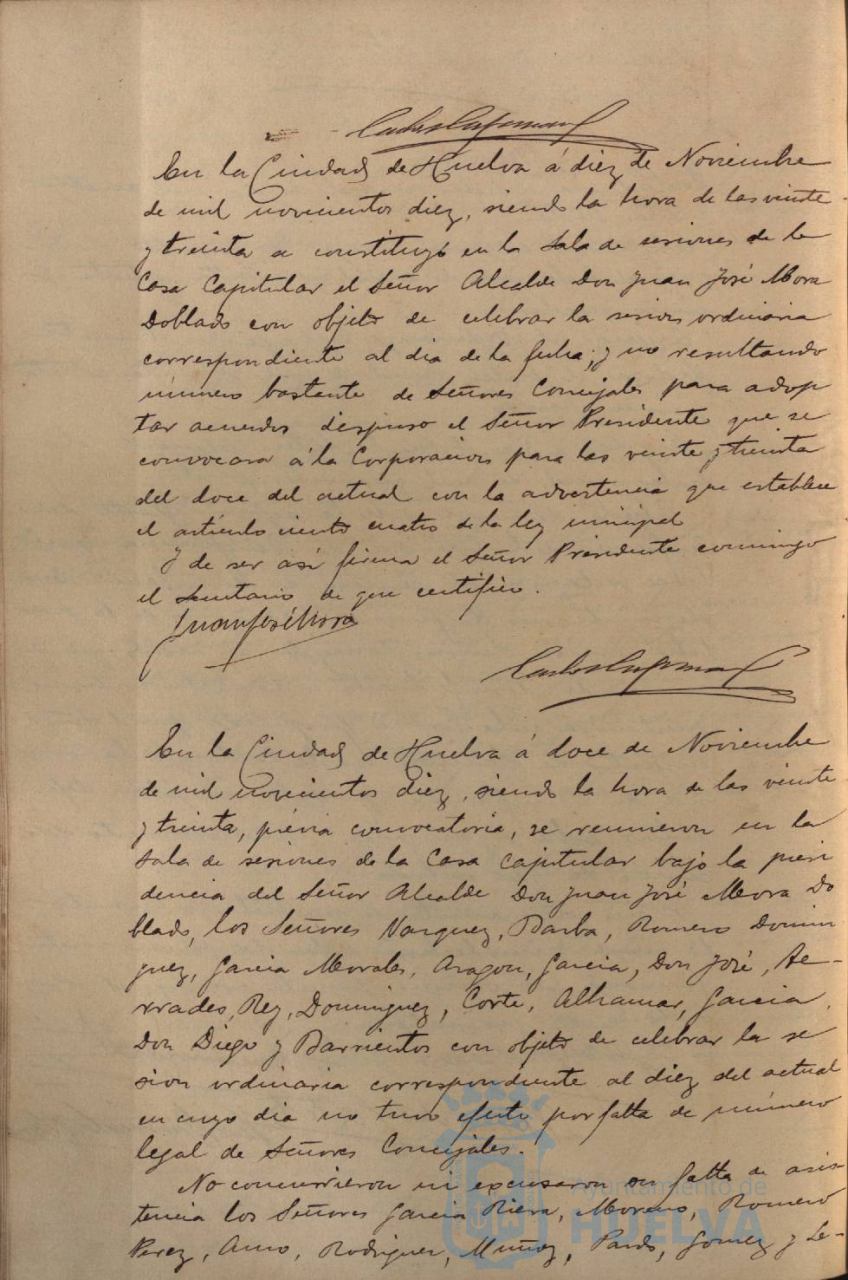 En la Ciudad de Huelva á diez de Noviembre
de mil novecientos diez, siendo la hora de las veinte
y treinta se constituyó en la Sala de sesiones de la
Casa Capitular el Señor Alcalde Don Juan José Mora
Doblado con objeto de celebrar la sesion ordinaria
correspondiente al dia de la fecha; y no resultando
número bastante de Señores Concejales para adop
tar acuerdos dispuso el Señor Presidente que se
convocara á la Corporacion para las veinte y treinta
del doce del actual con la advertencia que establece
el artículo ciento cuatro de la ley municipal
Y de ser así firma el Señor Presidente conmigo
el Secretario de que certifico.
Juan José Mora
En la Ciudad de Huelva á doce de Noviembre
de mil novecientos diez, siendo la hora de las veinte
y treinta, prévia convocatoria, se reunieron en la
Sala de sesiones de la Casa Capitular bajo la presi
dencia del Señor Alcalde Don Juan José Mora Do
blado, los Señores Vazquez, Barba, Romero Domin
guez, Garcia Morales, Aragon, Garcia, Don José, Te-
rrades, Rey, Dominguez, Corte, Alhamar, Garcia,
Don Diego y Barrientos con objeto de celebrar la se
sion ordinaria correspondiente al diez del actual
en cuyo dia no tuvo efecto por falta de número
legal de Señores Concejales.
No concurrieron ni excusaron su falta de asis
tencia los Señores Garcia Riera, Moreno, Romero
Perez, Amo, Rodriguez, Muñoz, Pardo, Gomez y Se-
Ayuntamiento de
HUELVA